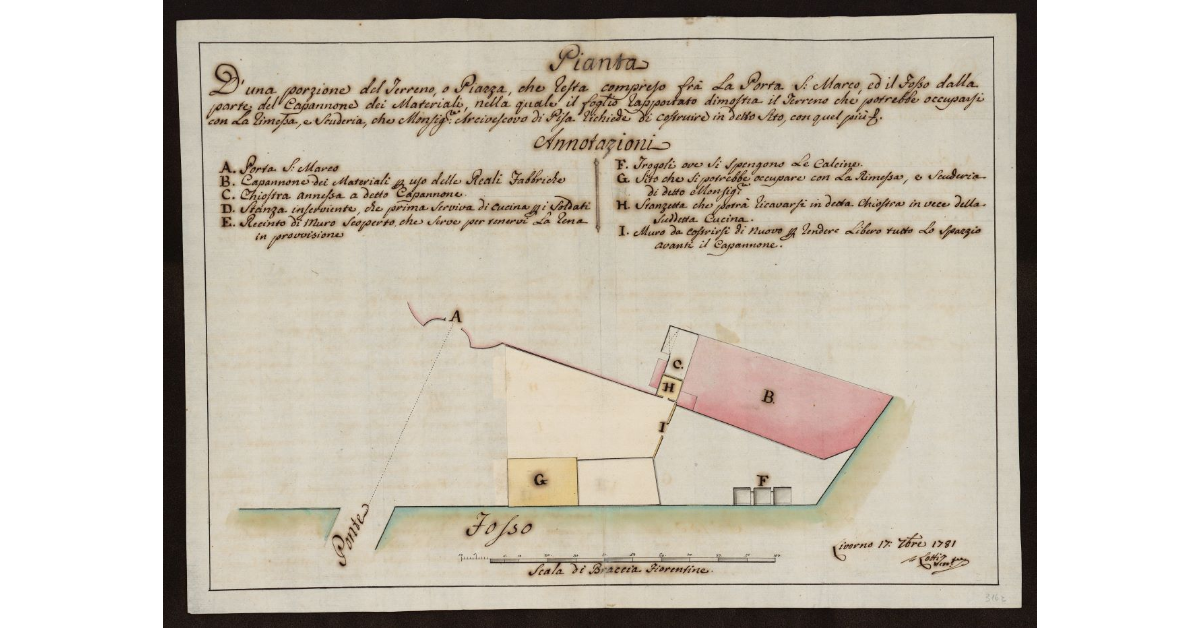 Pianta
D'una porzione del Terreno, o Piazza, che resta compreso frà La Porta S: Marco, ed il Fosso dalla
parte del Capannone dei Materiali, nella quale il foglio rapportato dimostra il Terreno che potrebbe occuparsi
con La Rimessa, e Scuderia, che Monsig.r Arcivescovo di Pisa richiede di costruire in detto Sito, con quel più &.
Annotazioni
A. Porta S: Marco
B. Capannone dei Materiali p uso delle Reali Fabbriche
C. Chiostra annessa a detto Capannone
D. Stanza inserviente, che prima Serviva di Cucina p i Soldati
E. Recinto di Muro Scoperto, che Serve per tenervi La Rena
in provvisione
F. Trogoli ove si Spengono Le Calcine
G. Sito che Si potrebbe occupare con La Rimessa, e Scuderia
di detto Monsig.r
H. Stanzetta che potrà ricavarsi in detta Chiostra in vece della
Sudetta Cucina.
I. Muro da costrirsi di Nuovo p rendere Libero tutto Lo Spazzio
avanti il Capannone.
A
C.
H
B.
I
G
F
Ponte
Fosso
Scala di Braccia Fiorentine.
Livorno 17: 7bre 1781